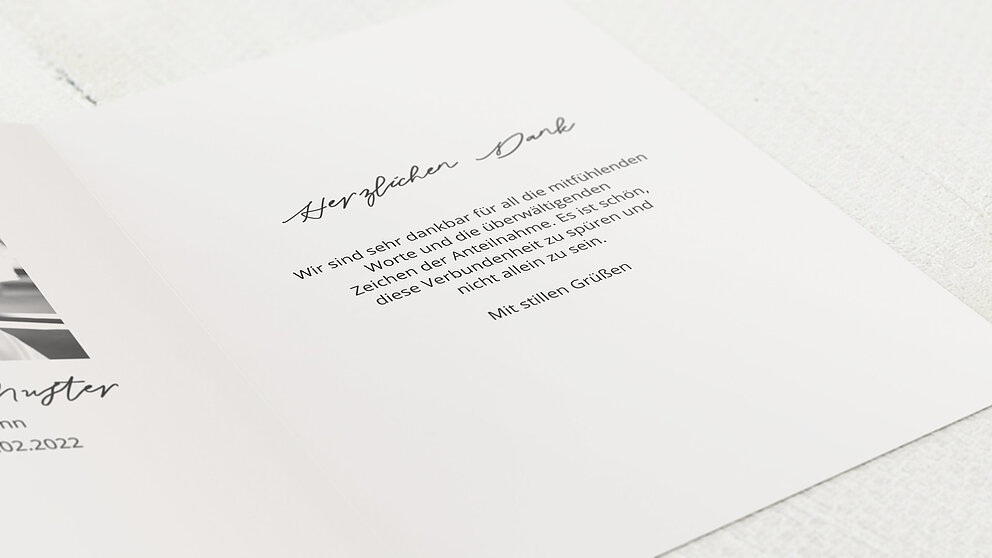 Herzlichen Dank
Wir sind sehr dankbar für all die mitfühlenden
Worte und die überwältigenden
Zeichen der Anteilnahme. Es ist schön,
diese Verbundenheit zu spüren und
nicht allein zu sein.
Mit stillen Grüßen
.02.2022